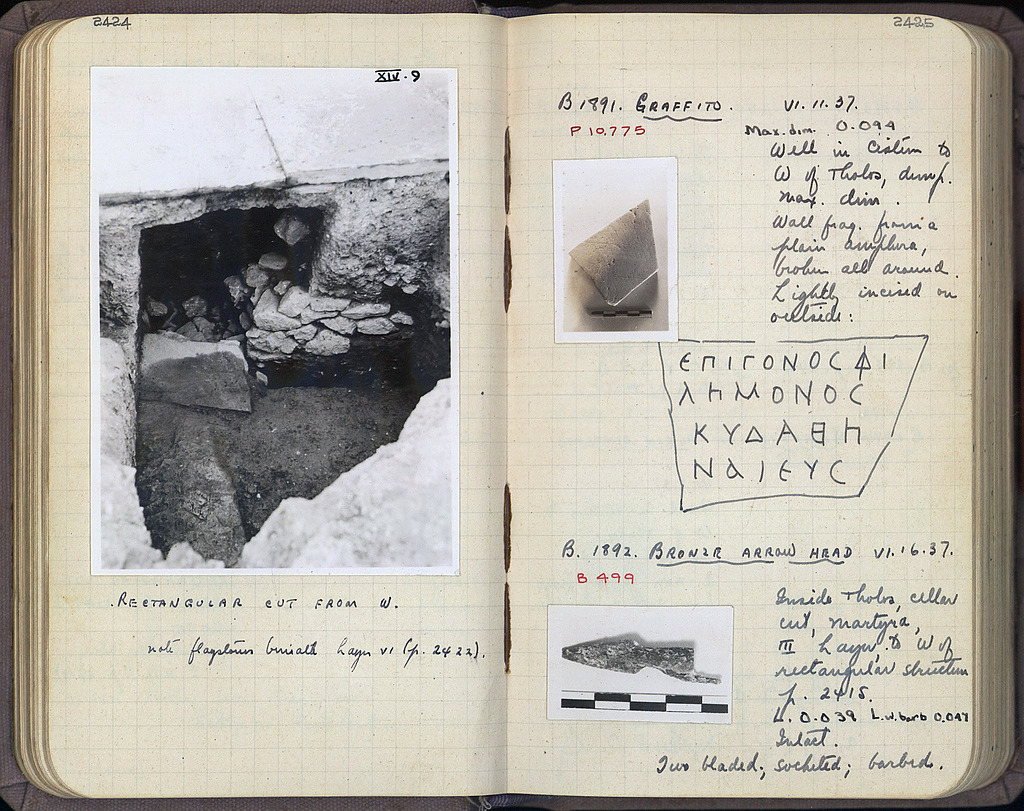 2424
XIV.9
.RECTANGULAR CUT FROM W.
note flagstones beneath Layer VI (p. 2422).
2425
B 1891. GRAFFITO. VI.11.37.
P 10,775
Max. dim. 0.094
Well in Cistern to
W of Tholos, dump.
Max. dim .
Wall frag. from a
plain amphora,
broken all around.
Lightly incised on
outside:
ΕΠΙΓΟΝΟϹΦΙ
ΛΗΜΟΝΟϹ
ΚΥΔΑΘΗ
ΝΑΙΕΥϹ
B. 1892. BRONZE ARROW HEAD VI.16.37.
B 499
Inside Tholos, cellar
cut, martyra,
III Layer, to W of
rectangular structure
p. 2415.
L. 0.039 L.w.barb 0.047
Intact.
Two bladed; socketed; barbed.